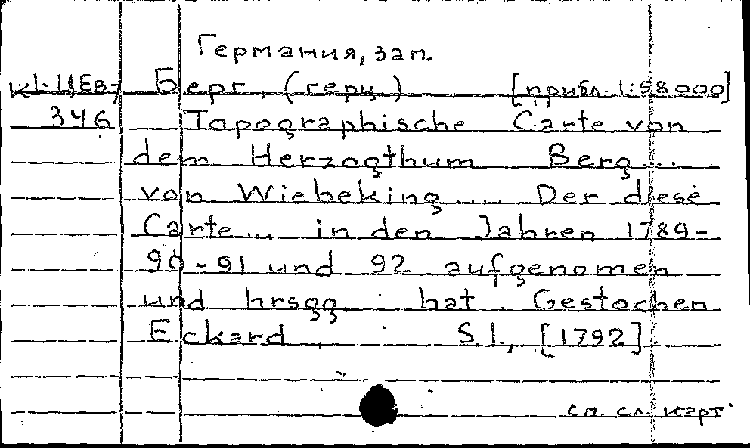 Германия, зап.
Берг, (герц.) [прибл. 1:58000]
346 Topographische Carte von
dem Herzogthum Berg...
von Wiebeking... Der diese
Carte... in den Jahren 1789-
90-91 und 92 aufgenomen
und hrsgg. hat. Gestochen
Eckard. S.l., [1792].
см. сл. карт.